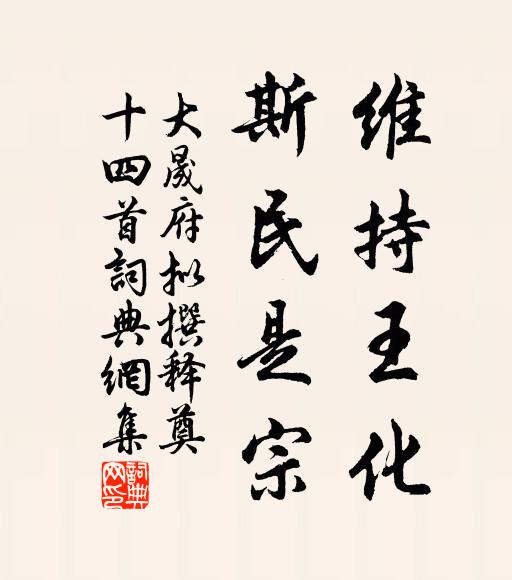 維持王化
斯民是宗
大晟府拟撰释奠
十四首詞典網集
詞典网印